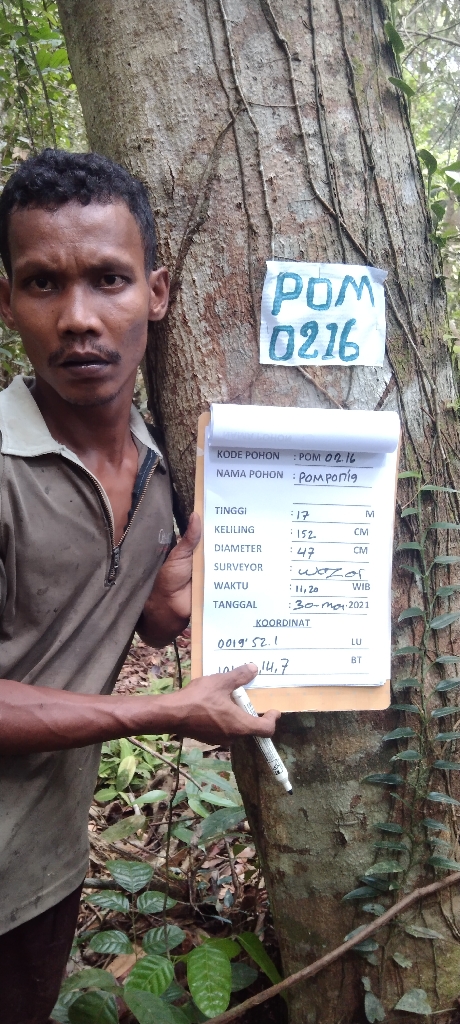 POM
0216
KODE POHON : POM 0216
NAMA POHON : POMPONia
TINGGI : 17 M
KELILING : 152 CM
DIAMETER : 47 CM
SURVEYOR :
WAKTU : 11,20 WIB
TANGGAL : 30-mei-2021
KOORDINAT
0019'52.1 LU
14,7 BT